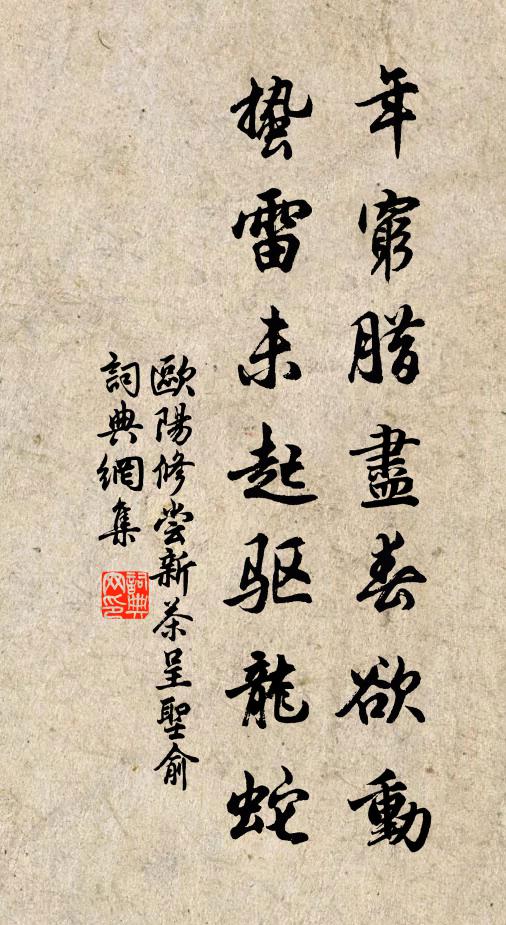 年窮腊盡春欲動
蟄雷未起驱龍蛇
歐陽修嘗新茶呈聖俞
詞典網集
詞典网印